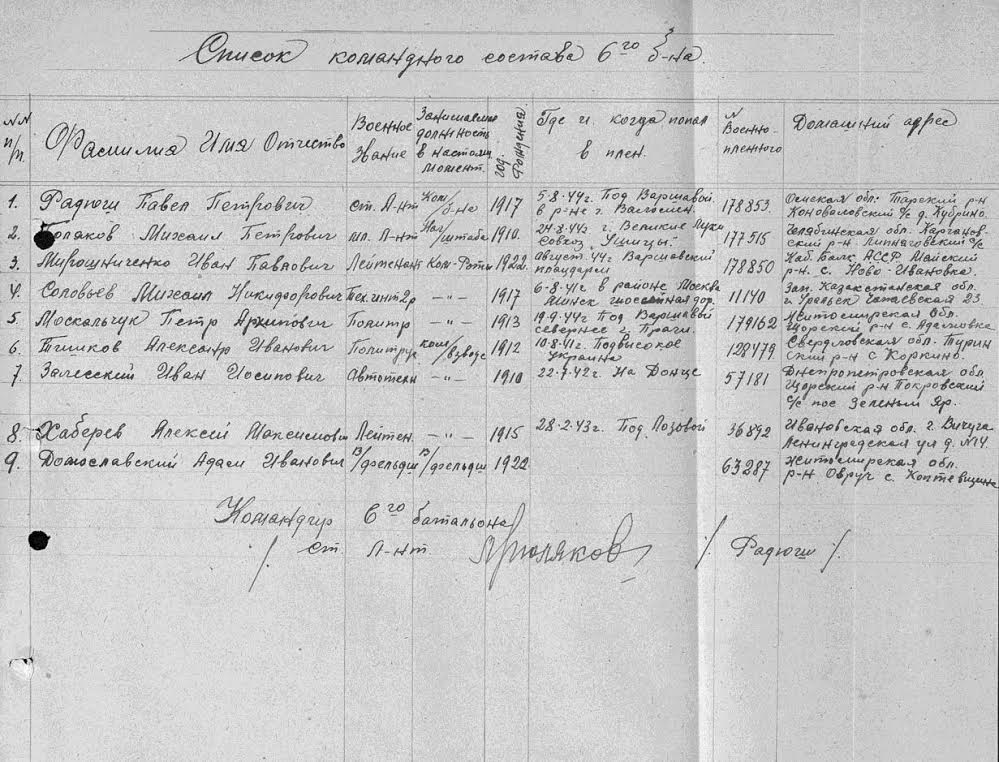 Список командного состава 6го б-на.
№№ п/п. Фамилия Имя Отчество Военное Звание Занимаемая должность в настоящ. момент. год рождения. Где и когда попал в плен. № Военно-пленного Домашний адрес
1. Радюги Павел Петрович ст. Л-нт Ком/б-на 1917 5-8-44г. Под Варшавой в р-не г. 178853 Омская обл. Тарский р-н Коноваловский с/с д. Кубрино.
2. Михаил Петрович мл. Л-нт Нач/штаба 1910 24-8-43г. г. Великие Луки Совхоз 177515 Челябинская обл. р-н с/с
3. Мирошниченко Иван Павлович Лейтенант Ком-Роты 1922 Август 44г Варшавский плацдарм 178850 Каб. Балк АССР Майский р-н. с. Ново-Ивановка.
4. Соловьев Михаил Никифорович Тех.инт2р -"- 1917 6-8-41г в районе Москва Минск дор. 11140 Зап. Казахстанская обл. г. Уральск Чапаевская 23.
5. Москальчук Петр Архипович Политр -"- 1913 19-9-44г Под Варшавой севернее г. Праги. 179162 Житомирская Обл. Щорский р-н с. Адамовка
6. Тишков Александр Иванович Политрук ком/взвода 1912 10-8-41г. Подвысокое Украина 128479 Свердловская обл. Турин ский р-н с Коркино.
7. Залесский Иван Иосипович Автотехн -"- 1910 22-7-42г. На Донце 57181 Днепропетровская обл Щорский р-н Покровский с/с пос Зеленый Яр.
8. Хаберев Алексей Максимович Лейтен. -"- 1915 28-2-43г. Под Лозовой 36892 Ивановская обл. г. Вичуга Ленинградская ул д. №4
9. Домославский Адам Иванович в/фельдш в/фельдш 1922 63287 Житомирская обл. р-н Овруч с.
Командир 6го батальона
/ ст Л-нт /. Радюги /.